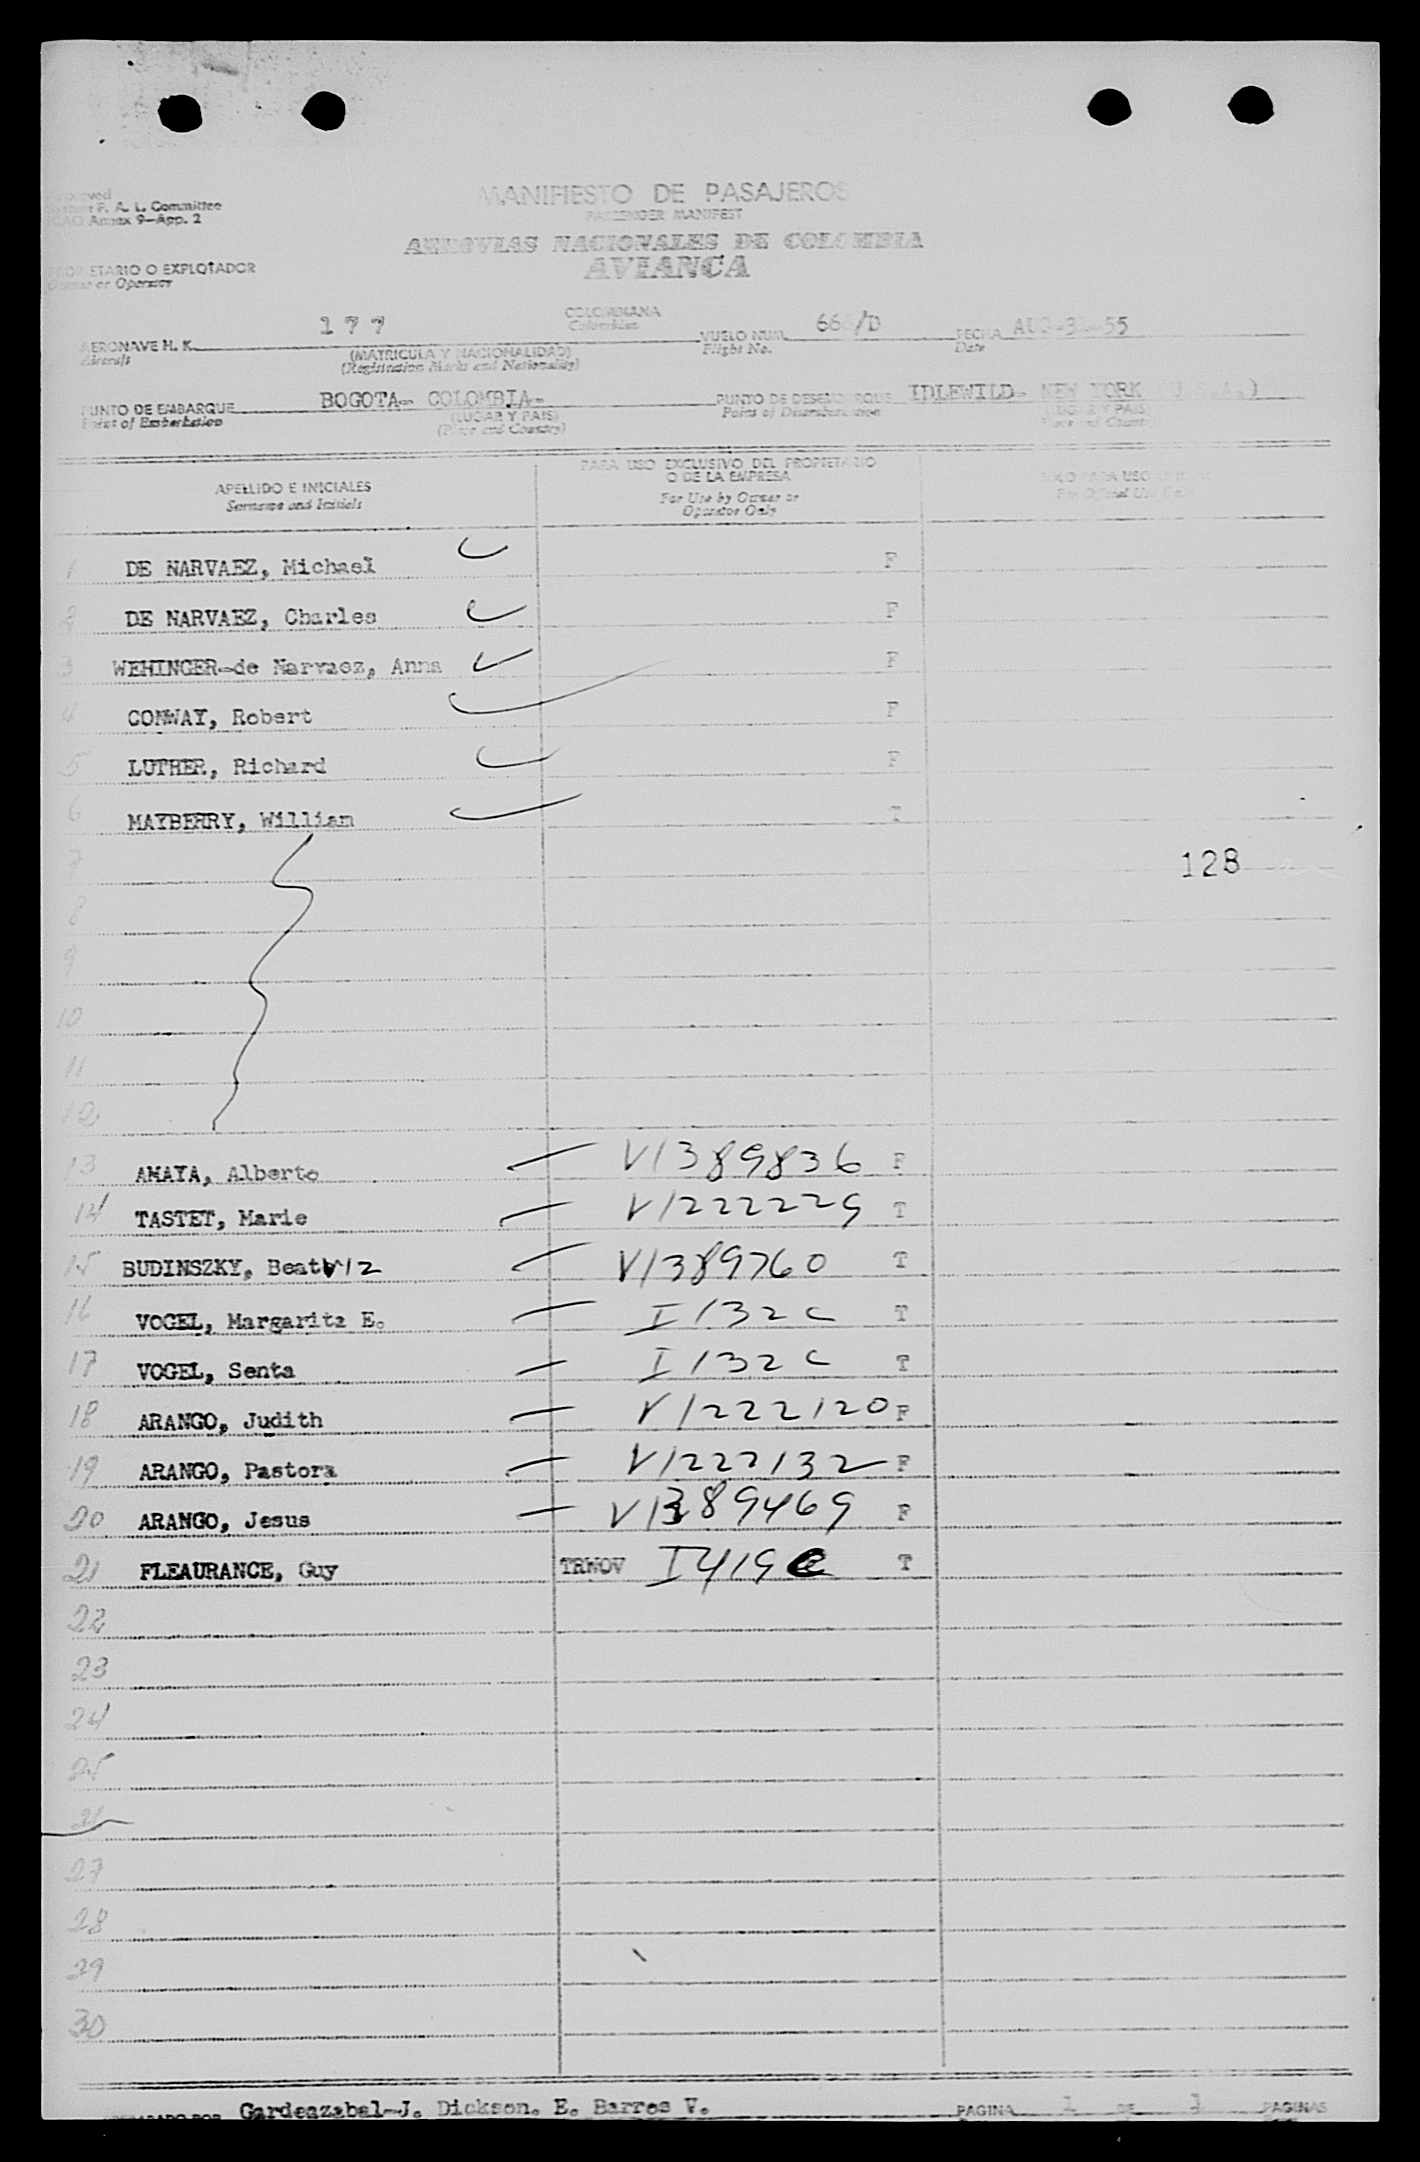 MANIFIESTO DE PASAJEROS
PASSENGER MANIFEST
F. A. L. Committee
Annex 9-App. 2
AEROVIAS NACIONALES DE COLOMBIA
AVIANCA
O EXPLOTADOR
or Operator
COLOMBIANA
Colombian
AERONAVE H. K. 177 VUELO NUM. FECHA
Aircraft (MATRICULA Y NACIONALIDAD) Flight No. Date
(Registration Marks and Nationality)
PUNTO DE EMBARQUE BOGOTA- COLOMBIA- PUNTO DE DESEMBARQUE IDLEWILD- NEW YORK
Point of Embarkation (LUGAR Y PAIS) Point of Disembarkation
(Place and Country)
APELLIDO E INICIALES
Surname and Initials
PARA USO EXCLUSIVO DEL PROPIETARIO
O DE LA EMPRESA
For Use by Owner or
Operator Only
SOLO PARA USO
For Official Use Only
1 DE NARVAEZ, Michael F
2 DE NARVAEZ, Charles F
3 WEHINGER-de Narvaez, Anna F
4 CONWAY, Robert F
5 LUTHER, Richard F
6 MAYBERRY, William T
7 128
8
9
10
11
12
13 AMAYA, Alberto V1389836 F
14 TASTET, Marie V1222229 T
15 BUDINSZKY, Beatriz V1389760 T
16 VOGEL, Margarita E. I 132 C T
17 VOGEL, Senta I 132 C T
18 ARANGO, Judith V1222120 F
19 ARANGO, Pastora V1222132 F
20 ARANGO, Jesus V1389469 F
21 FLEAURANCE, Guy TRWOV I419C T
22
23
24
25
26
27
28
29
30
Gardeazabal-J. Dickson. E. Barros V. PAGINA 1 DE PAGINAS